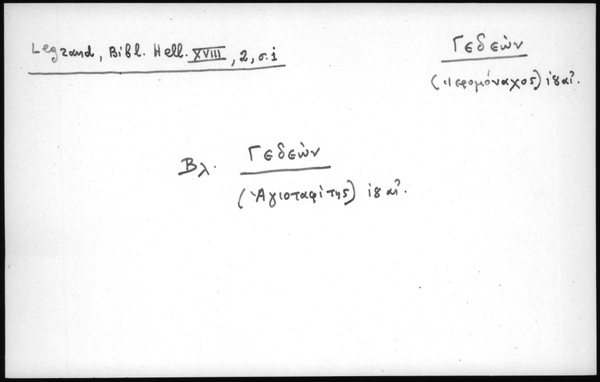 Legrand, Bibl. Hell. XVIII, 2, σ. 1
Γεδεών
(Ἱερομόναχος) ιη αἰ.
Βλ. Γεδεών
(Ἁγιοταφίτης) ιη αἰ.